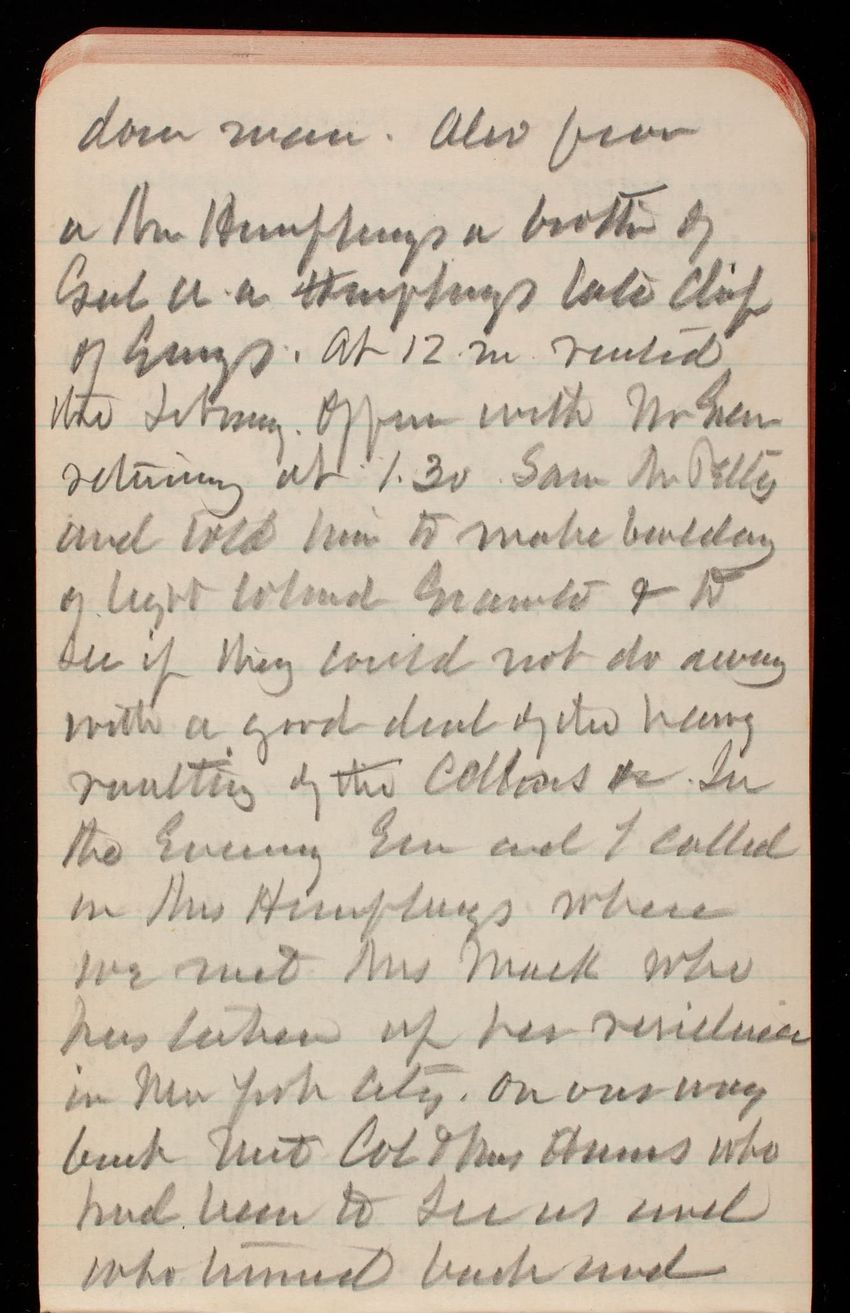 down man. Also from
a Mr Humphreys a brother of
Genl A. A. Humphreys late Chief
of Engrs. At 12 m. visited
the Library. Office with Mr Green
returning at 1.30. Saw Mr Petty
and told him to make building
of light colored Granite & to
see if they could not do away
with a good deal of the heavy
vaulting of the Cellars &c. In
the Evening Em and I called
on Mrs Humphreys where
we met Mrs Mack who
has taken up her residence
in New York City. On our way
back met Col & Mrs Hains who
had been to see us and
who turned back and